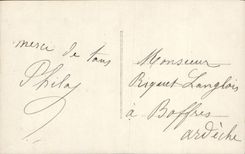 merci de tous
Philas
Monsieur
Riquet Langlois
à Boffres
ardèche